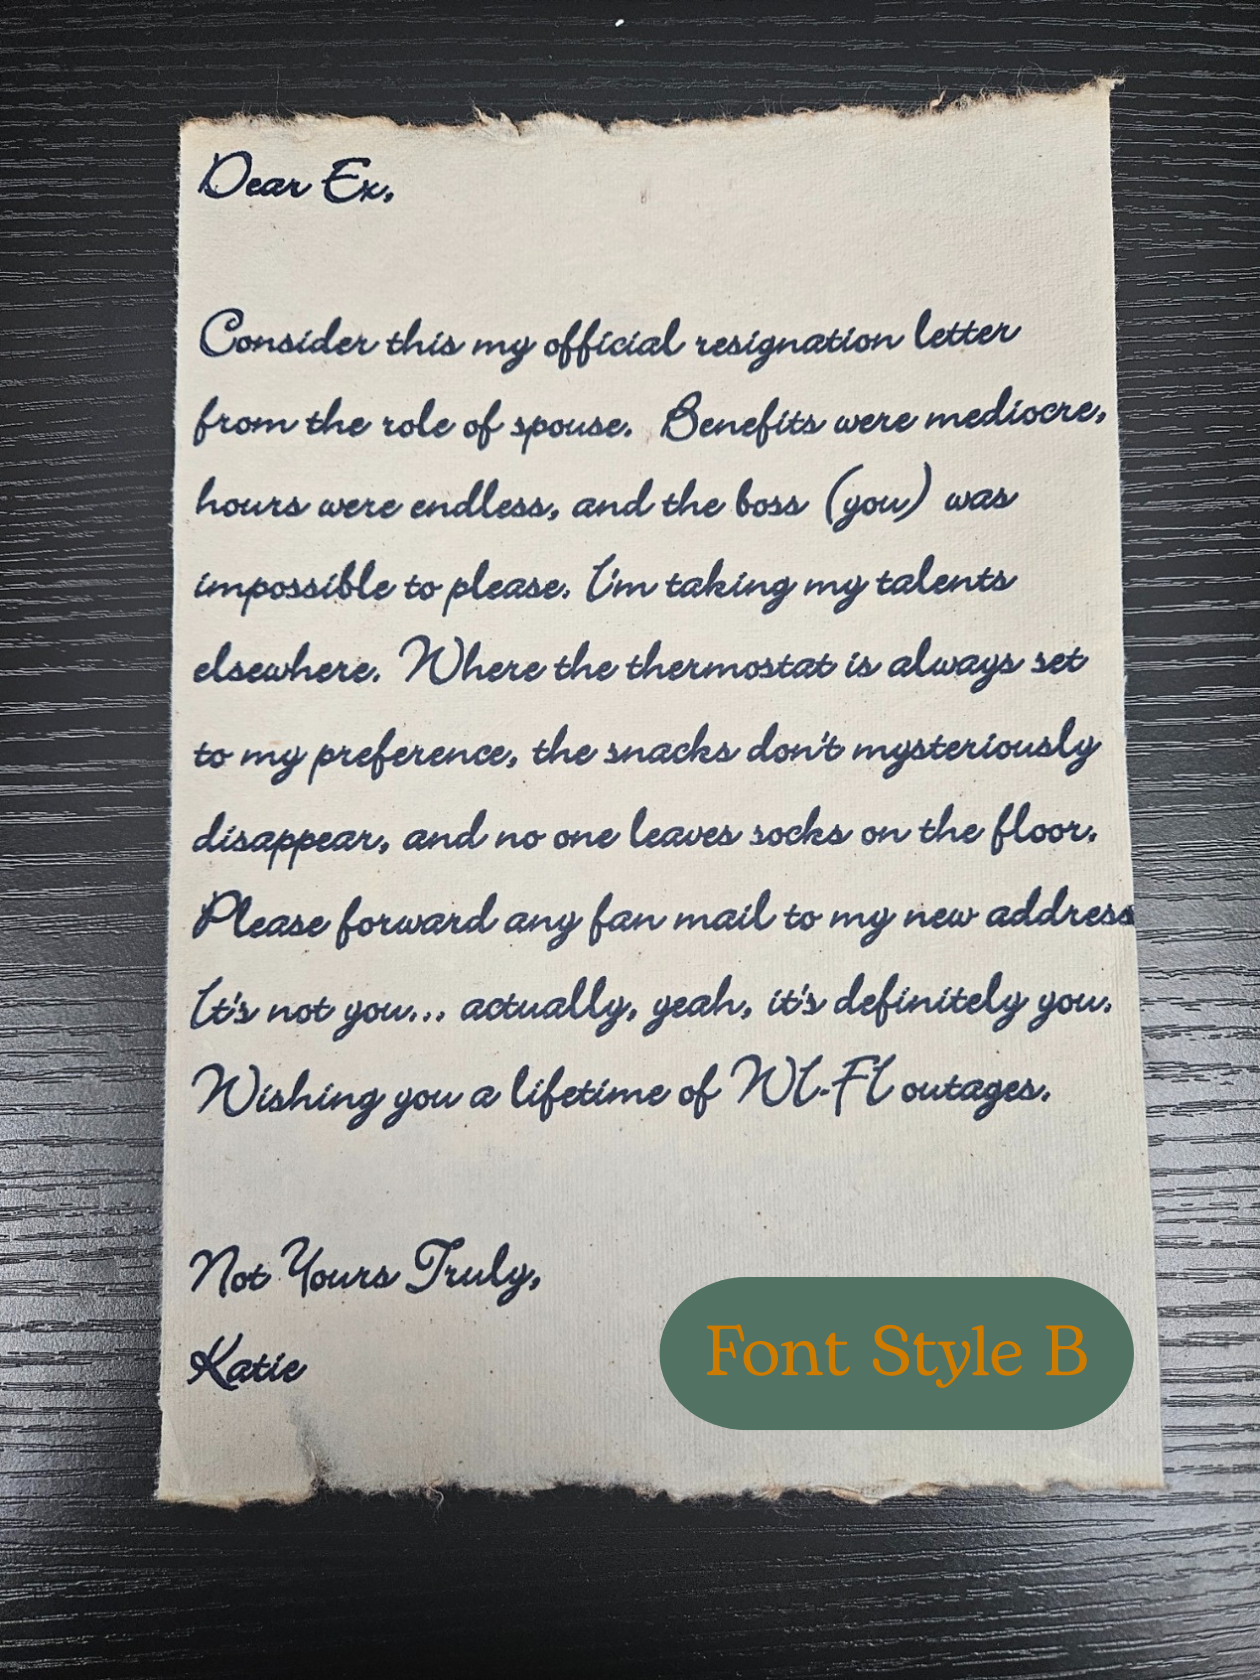 Dear Ex,
Consider this my official resignation letter
from the role of spouse. Benefits were mediocre,
hours were endless, and the boss (you) was
impossible to please. I'm taking my talents
elsewhere. Where the thermostat is always set
to my preference, the snacks don't mysteriously
disappear, and no one leaves socks on the floor.
Please forward any fan mail to my new address
It's not you... actually, yeah, it's definitely you.
Wishing you a lifetime of WI-FI outages.
Not Yours Truly,
Katie
Font Style B